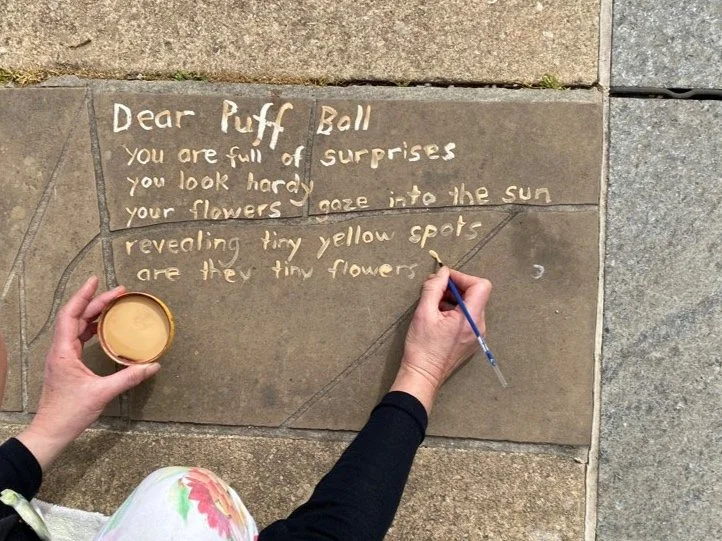 Dear Puff Ball
you are full of surprises
you look hardy
your flowers gaze into the sun
revealing tiny yellow spots
are they tiny flowers